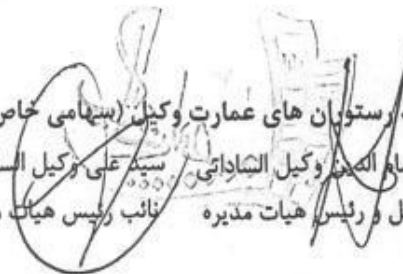 رستوران های عمارت وکیل (سهامی خاص
الدین وکیل الساداتی سید علی وکیل السا
ل و رئیس هیات مدیره نائب رئیس هیات